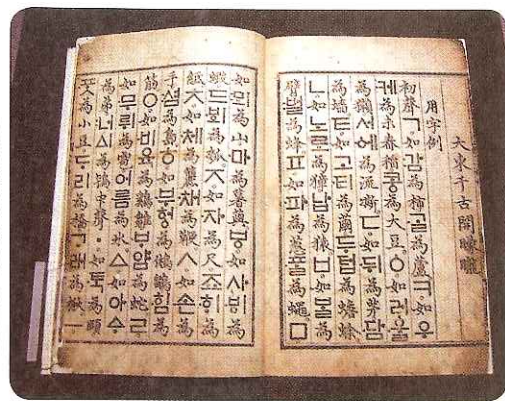 大東千古開曚曨
用字例
初聲ㄱ如감為柿ᄀᆞᆯ為蘆ㅋ如우
케為未舂稻콩為大豆ㆁ如러울
為獺서에為流凘ㄷ如뒤為茅담
為墻ㅌ如고티為繭두텁為蟾蜍
ㄴ如노로為獐납為猿ㅂ如ᄇᆞᆯ為
臂벌為蜂ㅍ如파為葱ᄑᆞᆯ為蠅ㅁ
如뫼為山마為薯藇ㅸ如사ᄫᅵ為
蝦드ᄫᅴ為瓠ㅈ如자為尺죠ᄒᆡ為
紙ㅊ如체為籭채為鞭ㅅ如손為
手셤為島ㅎ如부헝為鵂鶹힘為
筋ㅇ如비육為鷄雛ᄇᆞ얌為蛇ㄹ
如무뤼為雹어름為氷ㅿ如아ᅀᆞ
為弟너ᅀᅵ為鴇中聲ㆍ如ᄐᆞᆨ為頤
ᄑᆞᆺ為小豆ᄃᆞ리為橋ᄀᆞ래為楸ㅡ